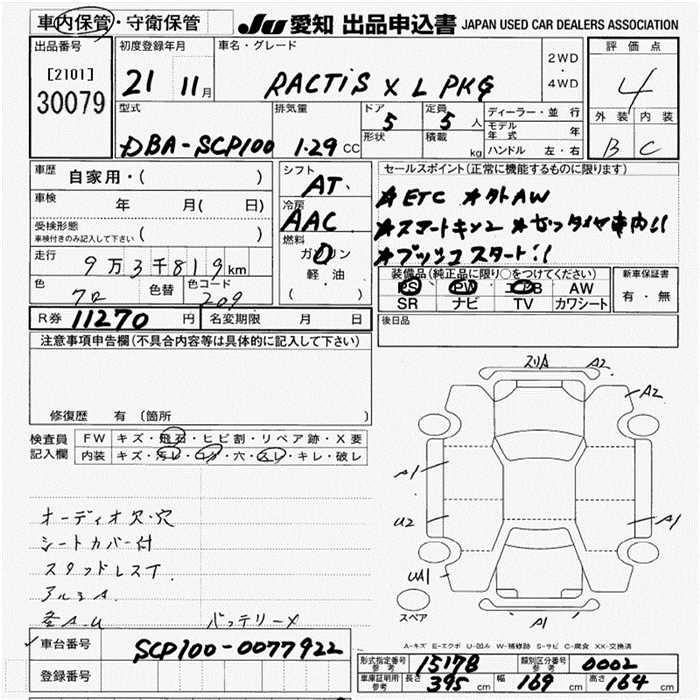 車内保管・守衛保管 JU 愛知 出品申込書 JAPAN USED CAR DEALERS ASSOCIATION
出品番号 初度登録年月 車名・グレード 2WD・4WD 評価点
[2101] 30079 21 11月 RACTiS X L PKG 4
型式 排気量 ドア 5 定員 5人 ディーラー・並行 外装 内装
DBA-SCP100 1.29CC 形状 積載 kg モデル年式 年 B C
ハンドル 左・右
車歴 自家用・( ) シフト AT セールスポイント(正常に機能するものに限ります)
車検 年 月( 日) 冷房 AAC ★ETC ★外AW
受検形態 車検付きのみ記入して下さい ( ) ★スマートキー2
走行 9万3千819km 燃料 ガソリン 軽油 ( ) ★プッシュスタート!!
色 色替 色コード 209 装備品(純正品に限り○をつけてください) 新車保証書
PS PW エアB AW 有・無
SR ナビ TV カワシート
R券 11270円 名変期限 月 日 後日品
注意事項申告欄(不具合内容等は具体的に記入して下さい)
修復歴 有(箇所 )
検査員記入欄 FW キズ・飛石・ヒビ割・リペア跡・X要
内装 キズ・汚レ・コゲ・穴・スレ・キレ・破レ
オーディオ欠・穴
シートカバー付
スタッドレスT
アルミA
バッテリー×
スリA A2
A2
A1
U2 A1
UA1
スペア A1
A-キズ E-エクボ U-凹み W-補修跡 S-サビ C-腐食 XX-交換済
車台番号 SCP100-0077922
登録番号
形式指定番号 参考 15178 類別区分番号 参考 0002
車庫証明用 参考 長さ 395cm 幅 169cm 高さ 164cm